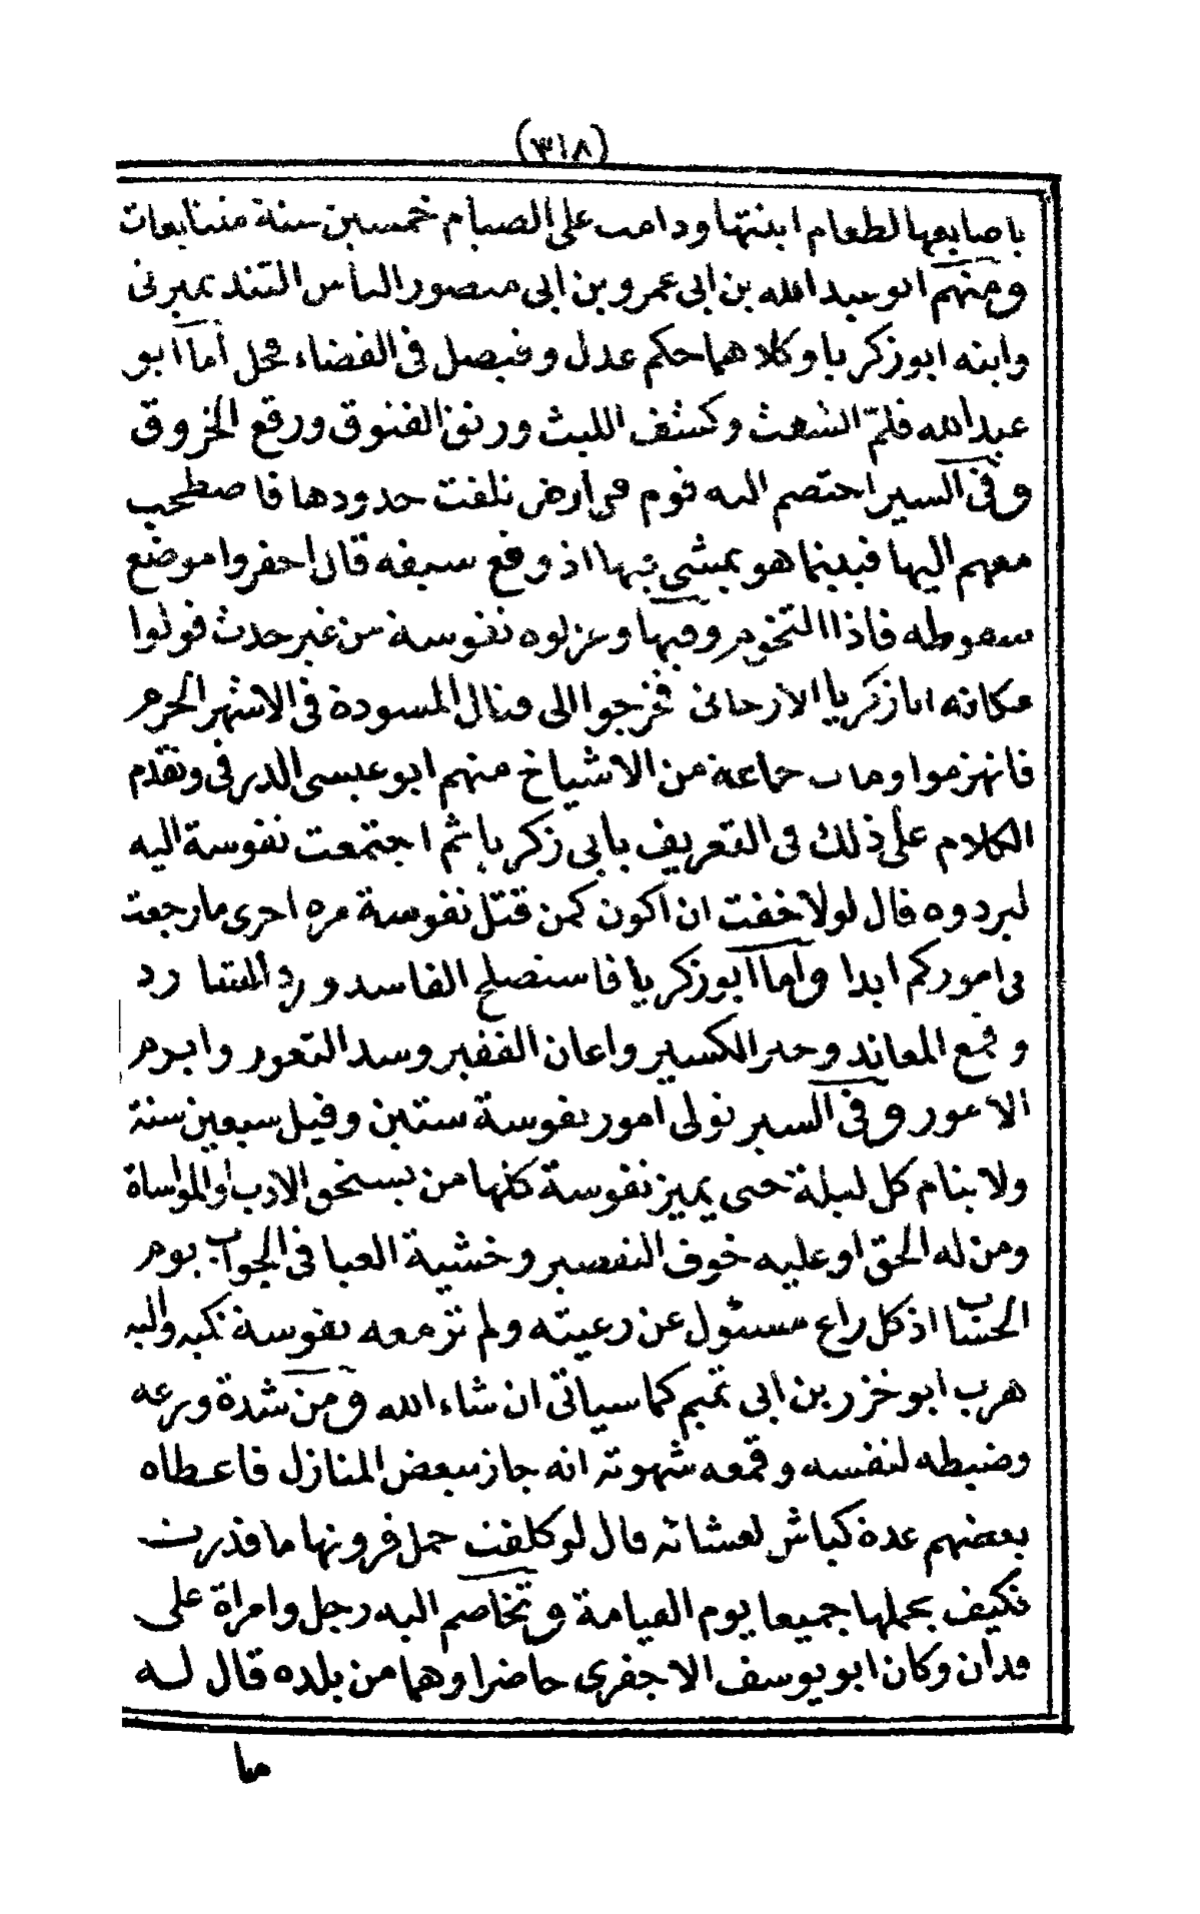 (٣١٨)
باصابعها لطعام ابنتها ودامت على الصيام خمسين سنة متتابعات
ومنهم ابو عبد الله بن ابى عمرو بن ابى منصور الياس التندميرتى
وابنه ابو زكريا وكلاهما حكم عدل وفيصل فى القضاء فحل أما ابو
عبد الله فلمّ الشعث وكشف اللبث ورتق الفتوق ورقع الخروق
وفى السير اختصم اليه قوم فى أرض تلفت حدودها فاصطحب
معهم اليها فبينما هو يمشى فيها اذ وقع سيفه قال احفروا موضع
سقوطه فاذا التخوم وفيها وعزلوه نفوسة من غير حدث فولوا
مكانه ابا زكريا الارجانى فخرجوا الى قتال المسودة فى الاشهر الحرم
فانهزموا ومات جماعة من الاشياخ منهم ابو عيسى الدرفى وتقدم
الكلام على ذلك فى التعريف بابى زكريا ثم اجتمعت نفوسة اليه
ليردوه قال لولا خفت ان اكون كمن قتل نفوسة مرة اخرى ما رجعت
فى اموركم ابدا وأما ابو زكريا فاستصلح الفاسد ورد الشارد
وقمع المعاند وجبر الكسير واعان الفقير وسد الثغور وابرم
الامور وفى السير تولى امور نفوسة ستين وقيل سبعين سنة
ولا ينام كل ليلة حتى يميز نفوسة كلها من يستحق الادب او المواساة
ومن له الحق او عليه خوف التقصير وخشية العيا فى الجواب يوم
الحساب اذ كل راع مسئول عن رعيته ولم تزمعه نفوسة نكبة واليه
هرب ابو خزر بن ابى تميم كما سياتى ان شاء الله ومن شدة ورعه
وضبطه لنفسه وقمعه شهوته انه جاز ببعض المنازل فاعطاه
بعضهم عدة كباش لعشائه قال لو كلفت حمل قرونها ما قدرت
فكيف بحملها جميعا يوم القيامة وتخاصم اليه رجل وامراة على
فدان وكان ابو يوسف الاجفرى حاضرا وهما من بلده قال له
ما